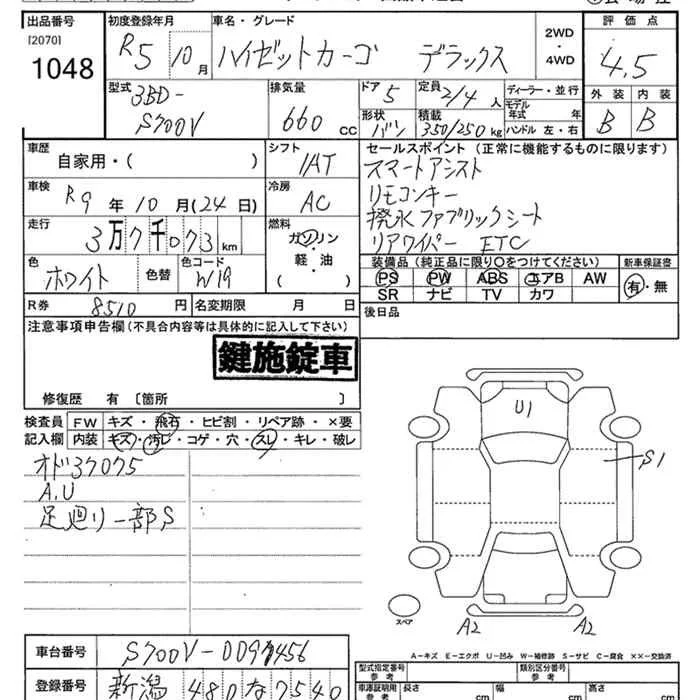 出品番号 初度登録年月 車名・グレード 評価点
[2070]
1048
R5 10月 ハイゼットカーゴ デラックス 2WD・4WD 4.5
型式 排気量 ドア 5 定員 2/4人 ディーラー・並行 外装 内装
3BD-
S700V
660cc
形状 バン 積載 350/250kg モデル年式 年式 ハンドル 左・右 B B
車歴 シフト セールスポイント(正常に機能するものに限ります)
自家用・( ) IAT スマートアシスト
車検 冷房 リモコンキー
R9年10月(24日) AC 撥水ファブリックシート
走行 燃料 リアワイパー ETC
3万7千073km ガソリン・軽・油( )
色 色替 色コード 装備品(純正品に限り○をつけてください) 新車保証書
ホワイト W19 PS PW ABS エアB AW 有・無
SR ナビ TV カワ
R券 8510円 名変期限 月 日 後日品
注意事項申告欄(不具合内容等は具体的に記入して下さい)
鍵施錠車
修復歴 有〔箇所 〕
検査員 FW キズ・飛石・ヒビ割・リペア跡・×要
記入欄 内装 キズ・汚レ・コゲ・穴・スレ・キレ・破レ
オド37075
A.U
足廻リ一部S
U1
S1
スペア A2 A2
A-キズ E-エクボ U-凹み W-補修跡 S-サビ C-腐食 ××-交換済
車台番号 S700V-0097456
型式指定番号 類別区分番号
登録番号 新潟 480な7540
車庫証明用参考 長さ 参考 cm 幅 参考 cm 高さ 参考 cm